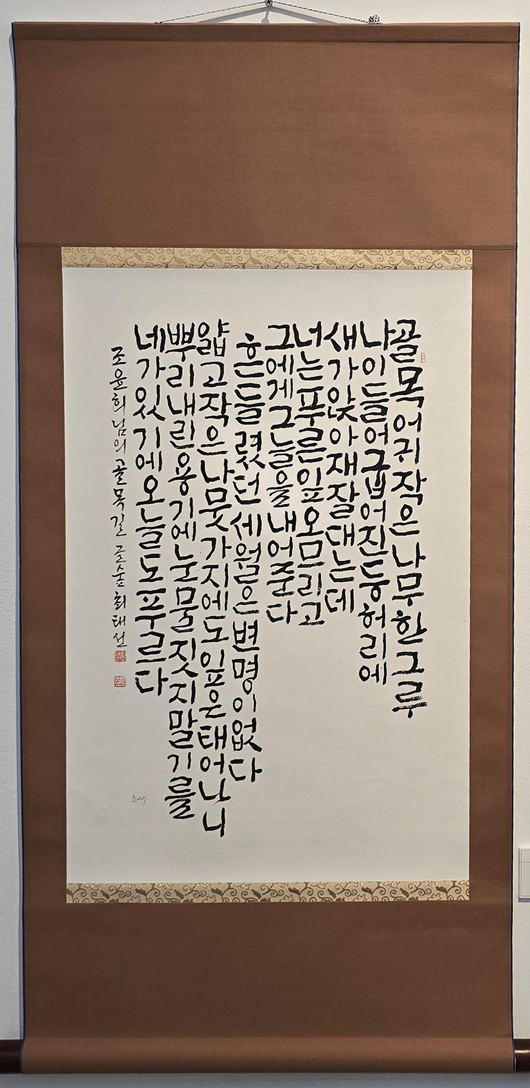 골목 어귀 작은 나무 한 그루
나이 들어 굽어진 등허리에
새가 앉아 재잘대는데
너는 푸른 잎 오므리고
그에게 그늘을 내어준다
흔들렸던 세월은 변명이 없다
얇고 작은 나뭇가지에도 잎은 태어나니
뿌리 내린 용기에 눈물짓지 말기를
네가 있기에 오늘도 푸르다
조윤희님의 골목길 글숨 최태선